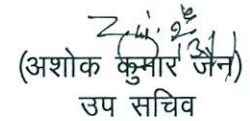 (अशोक कुमार जैन)
उप सचिव